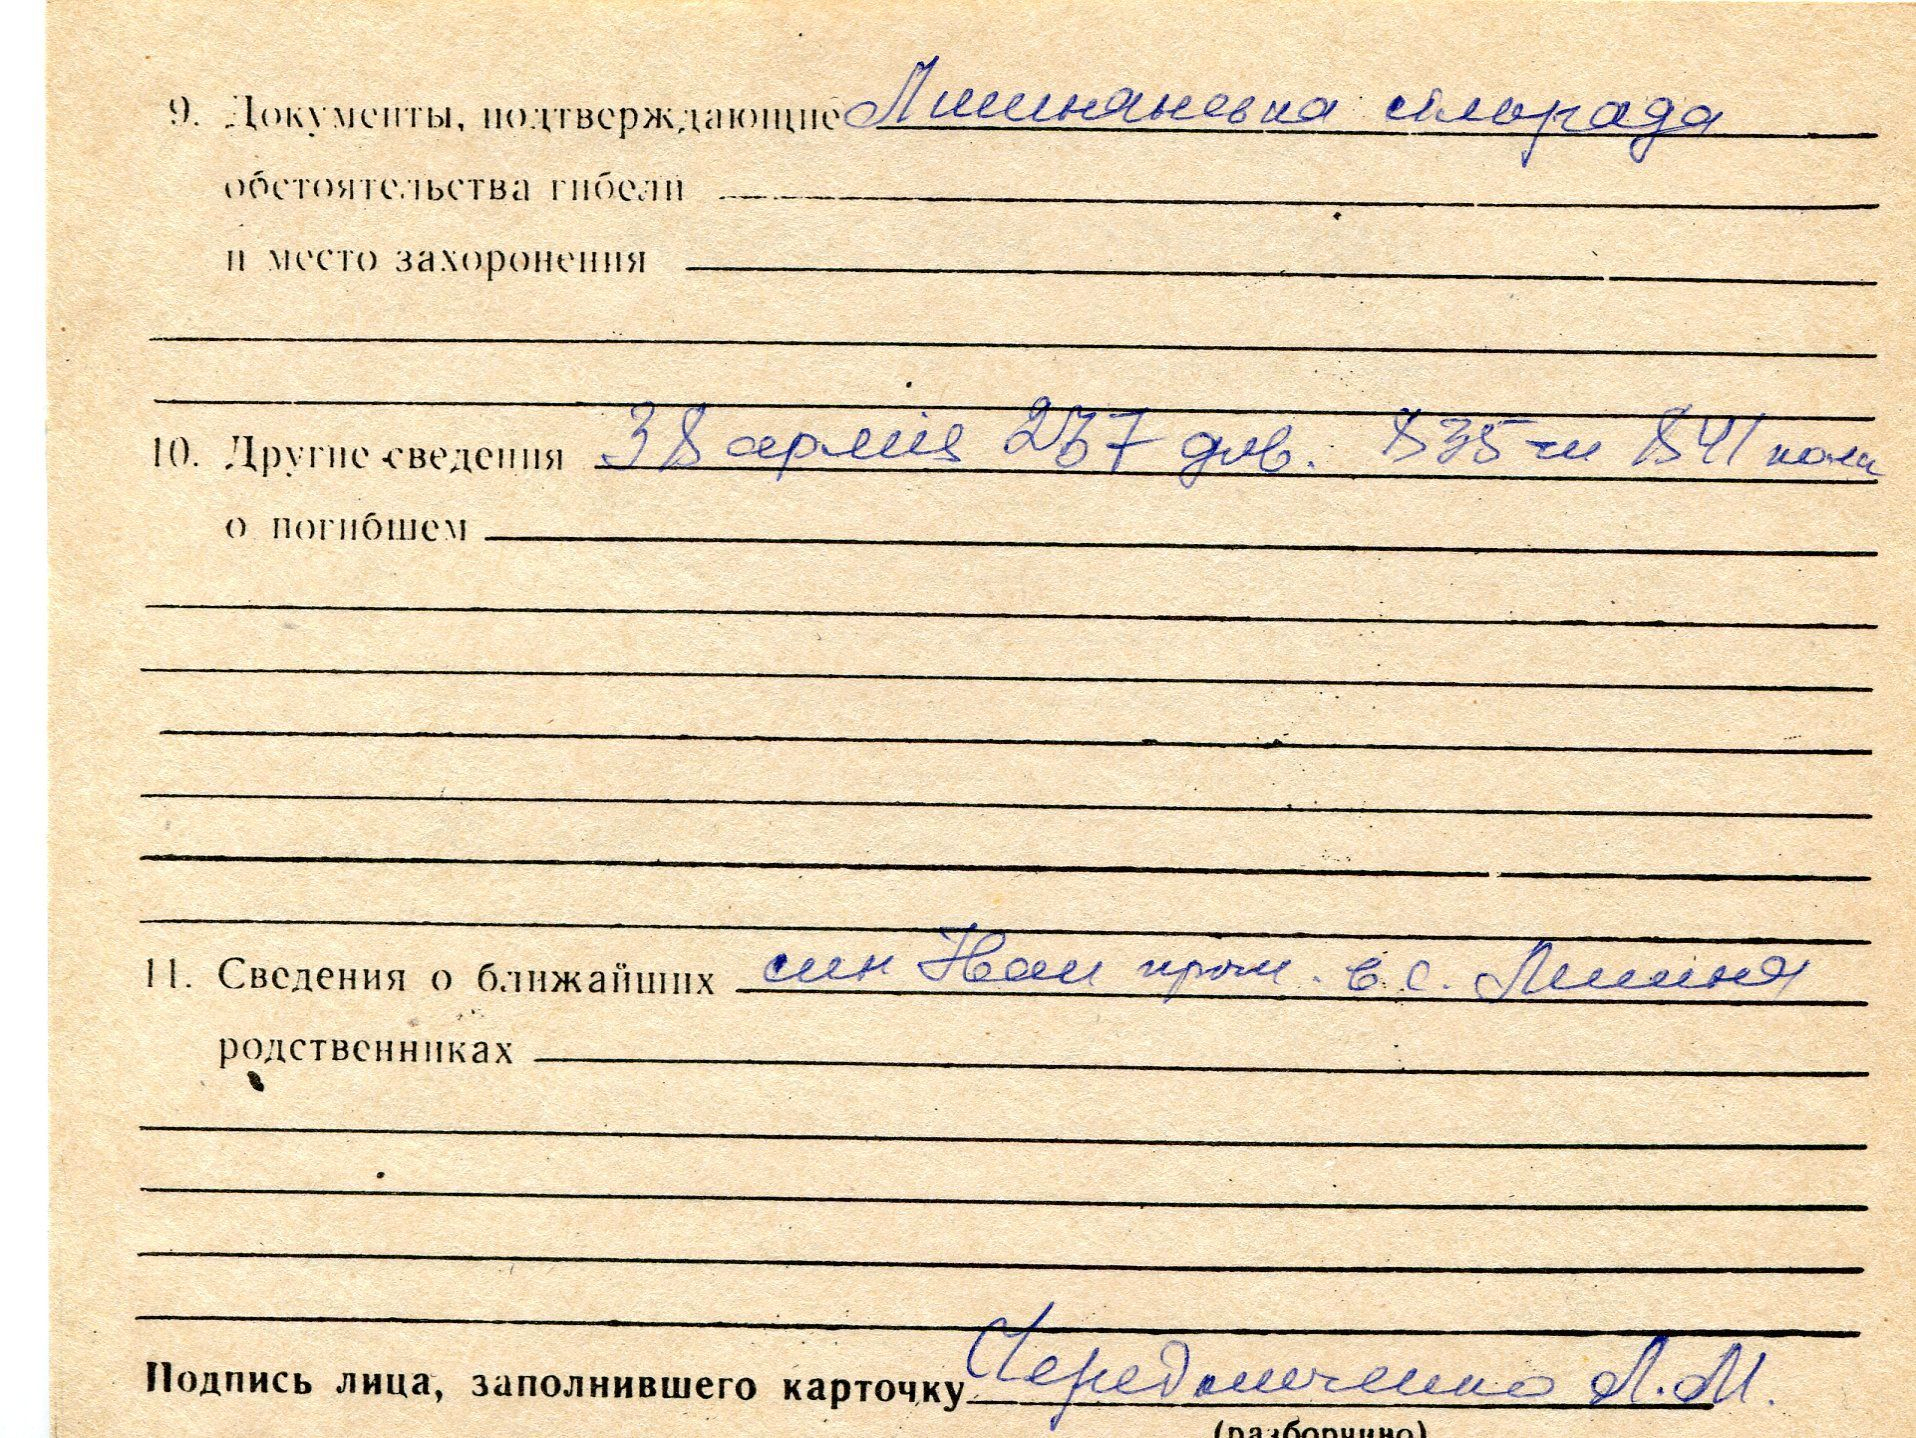 9. Документы, подтверждающие Лишнянська сільрада
обстоятельства гибели
и место захоронения
10. Другие сведения 38 армія 237 див. 835 и 841 полк
о погибшем
11. Сведения о ближайших син Иван прож. в с. Лишня
родственниках
Подпись лица, заполнившего карточку Чередниченко Л. М.
(разборчиво)